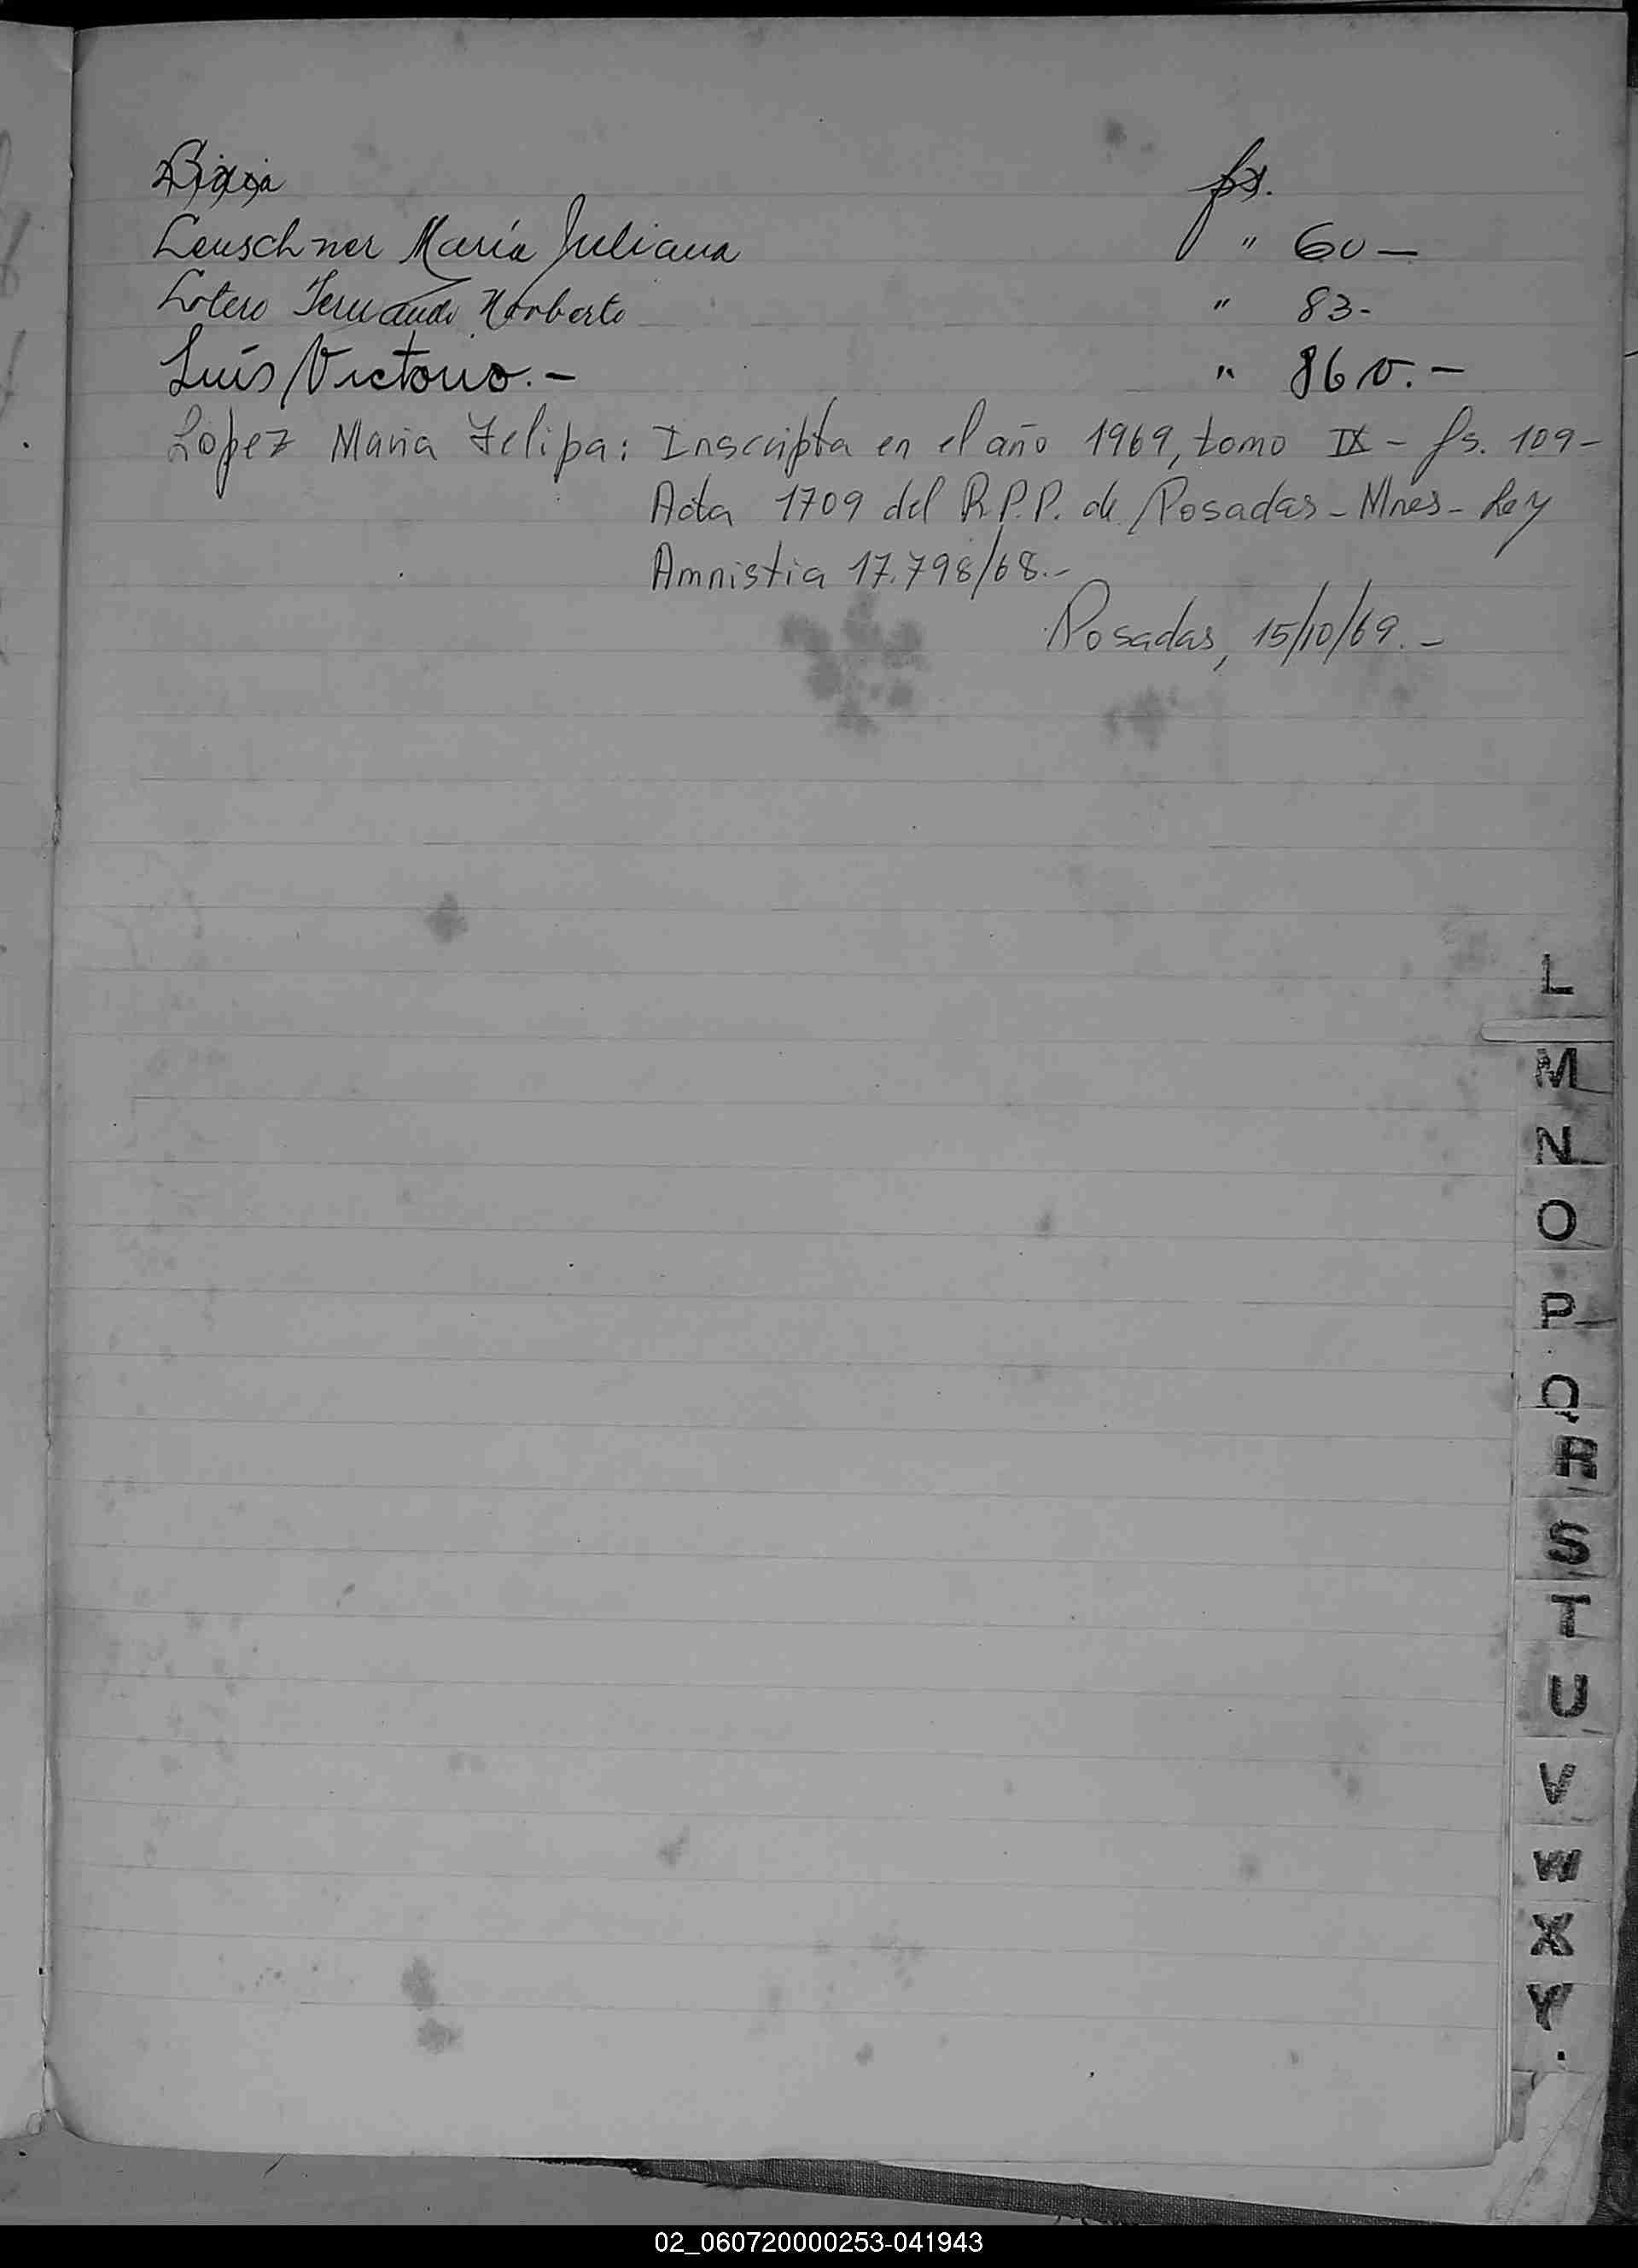 fs.
Leuschner María Juliana " 60 —
Lotero Fernando Norberto " 83 -
Luis Victorio. - " 86 v. -
López Maria Felipa: Inscripta en el año 1969, tomo IX - fs. 109 -
Acta 1709 del R.P.P. de Posadas - Mnes - Ley
Amnistia 17.798/68. -
Posadas, 15/10/69. -
L
M
N
O
P
Q
R
S
T
U
V
W
X
Y
02_060720000253-041943